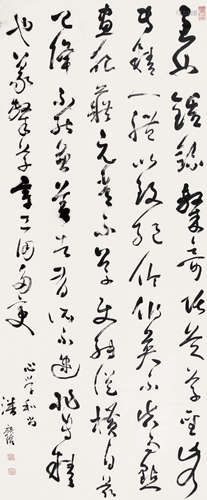 至如鍾繇隸奇張芝草聖此乃
專精一體以致絕倫伯英不真而點
畫狼藉元常不草使轉縱橫自茲
已降不能兼善者有所不逮非專精
也篆隸草章工用多變
和尚
潘